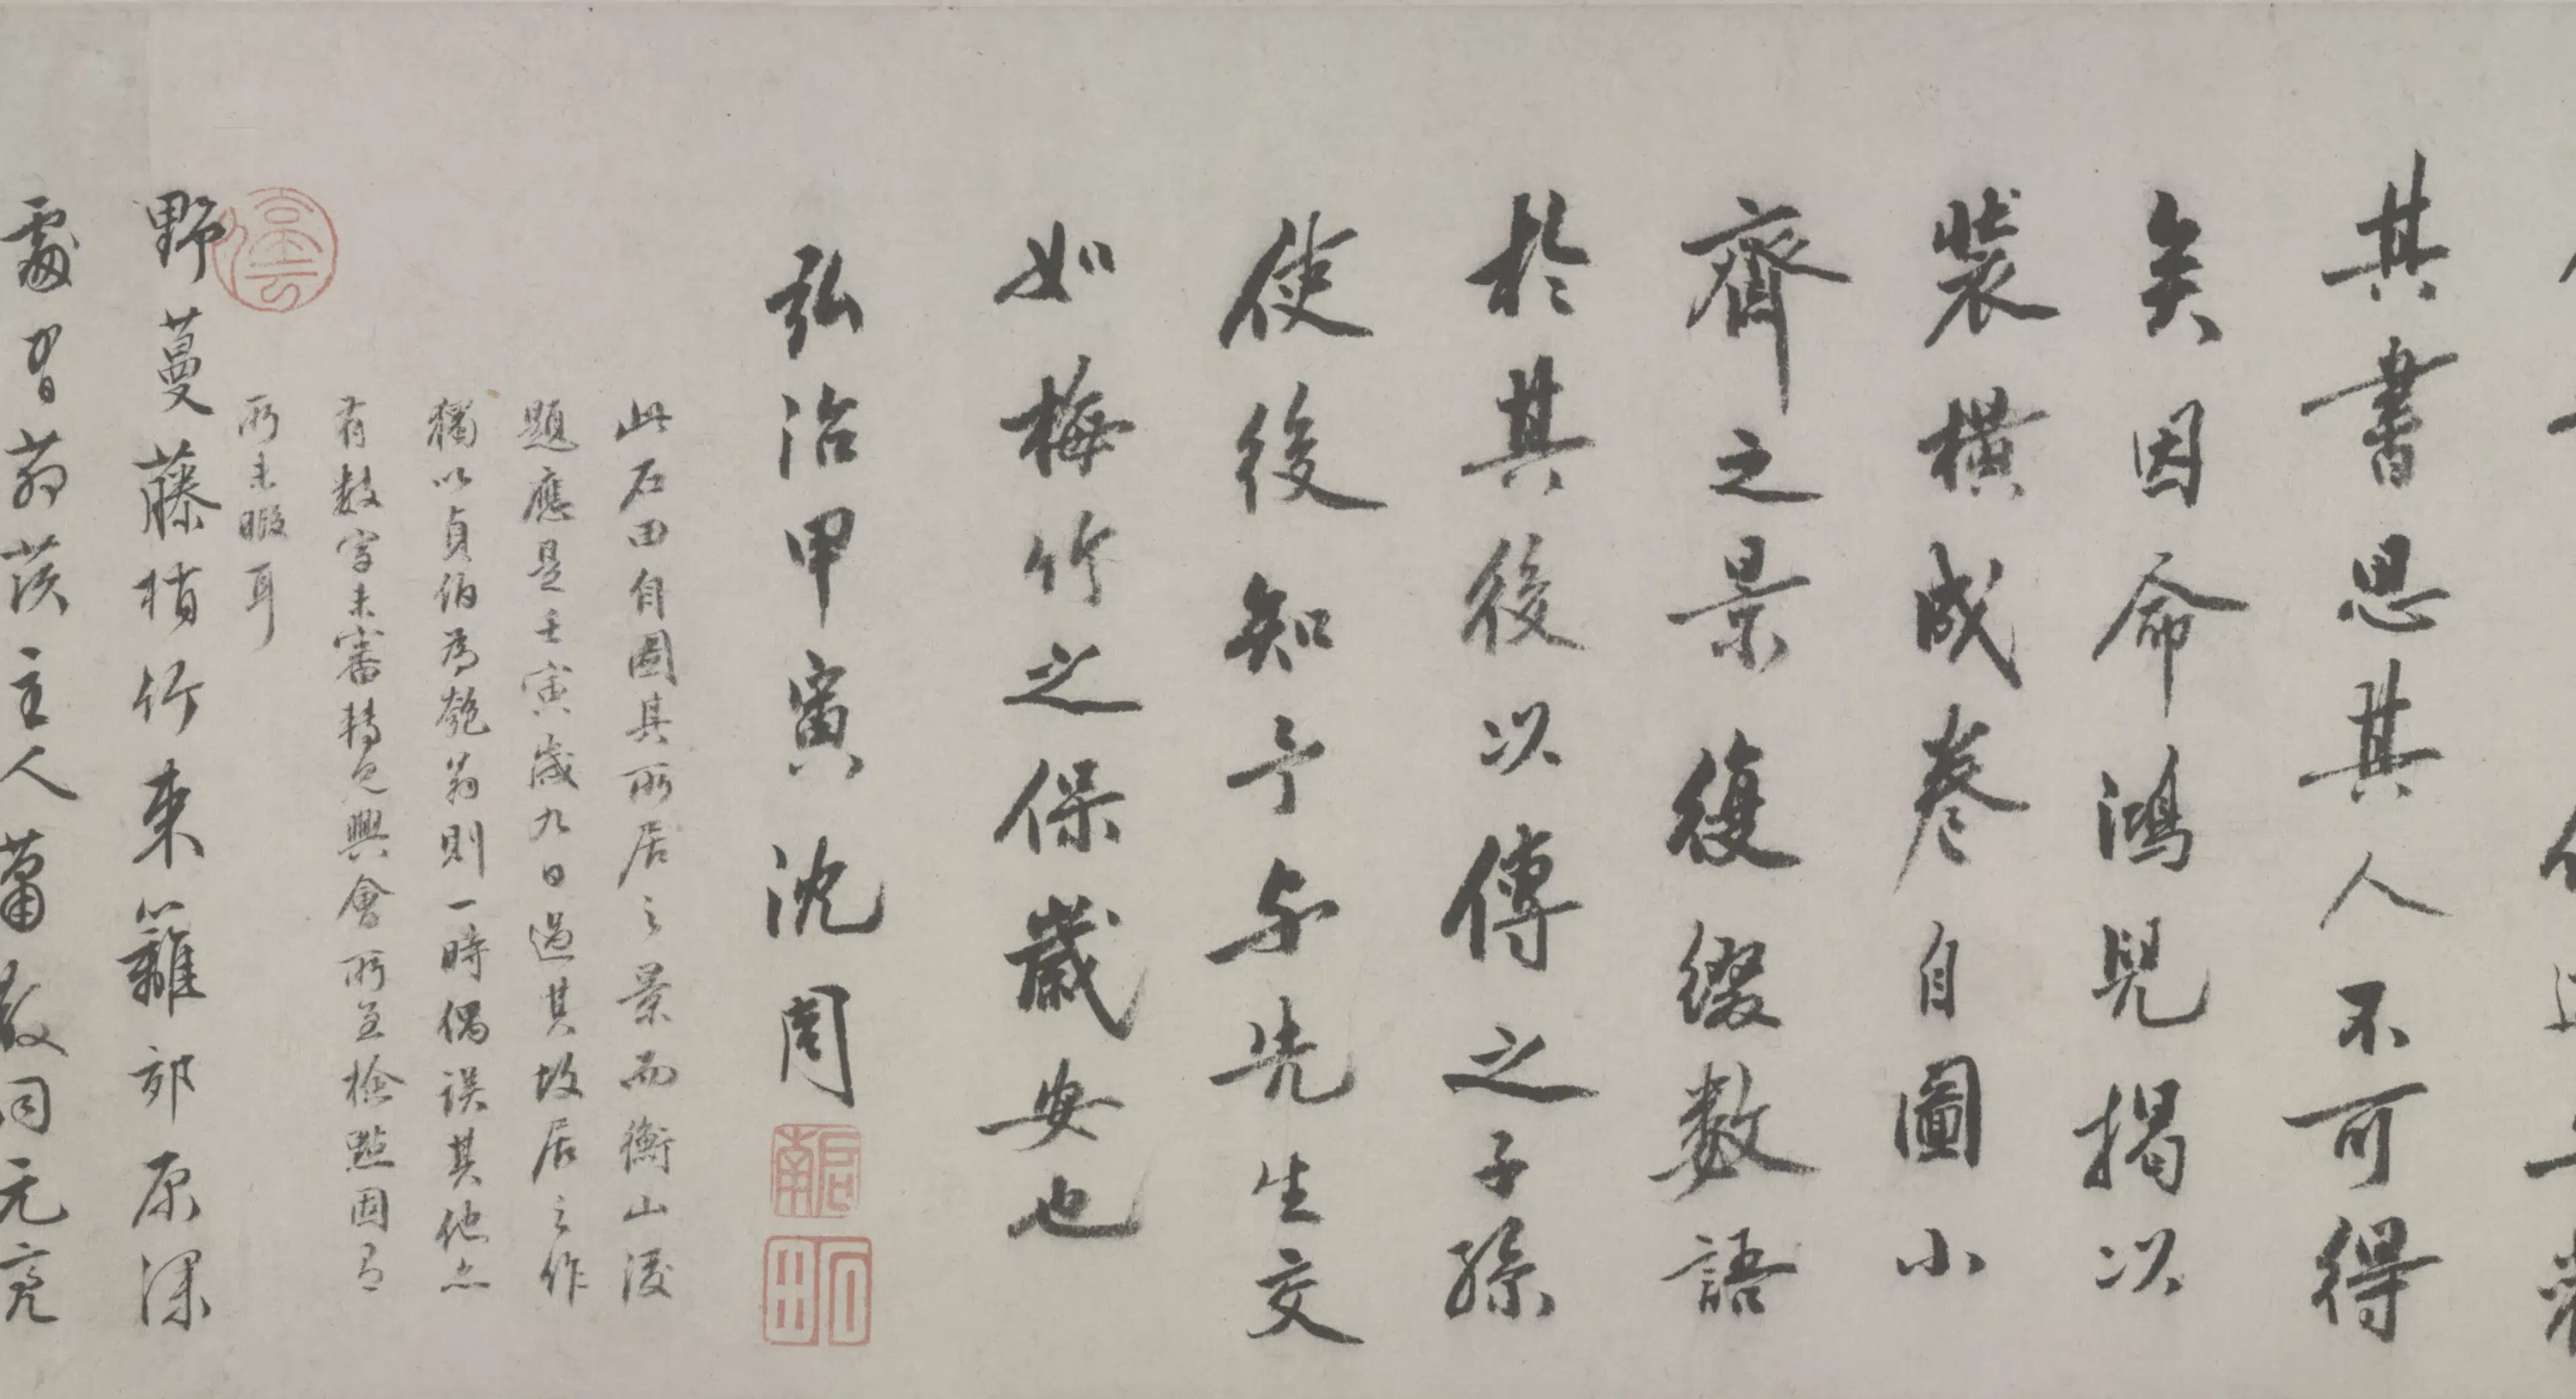 其書思其人不可得
矣因命鴻兒揭以
裝橫成卷自圖小
齋之景復綴數語
於其後以傳之子孫
使後知予与先生交
如梅竹之保歲安也
弘治甲寅沈周
啟南
石田
此石田自圖其所居之景而衡山後
題應是壬寅歲九日過其故居之作
獨以貞伯為匏翁則一時偶誤其他点
有數字未審特見興會所至檢點固有
所未暇耳
野蔓藤梢竹束籬郊原深
處有茆茨主人蕭散同元亮